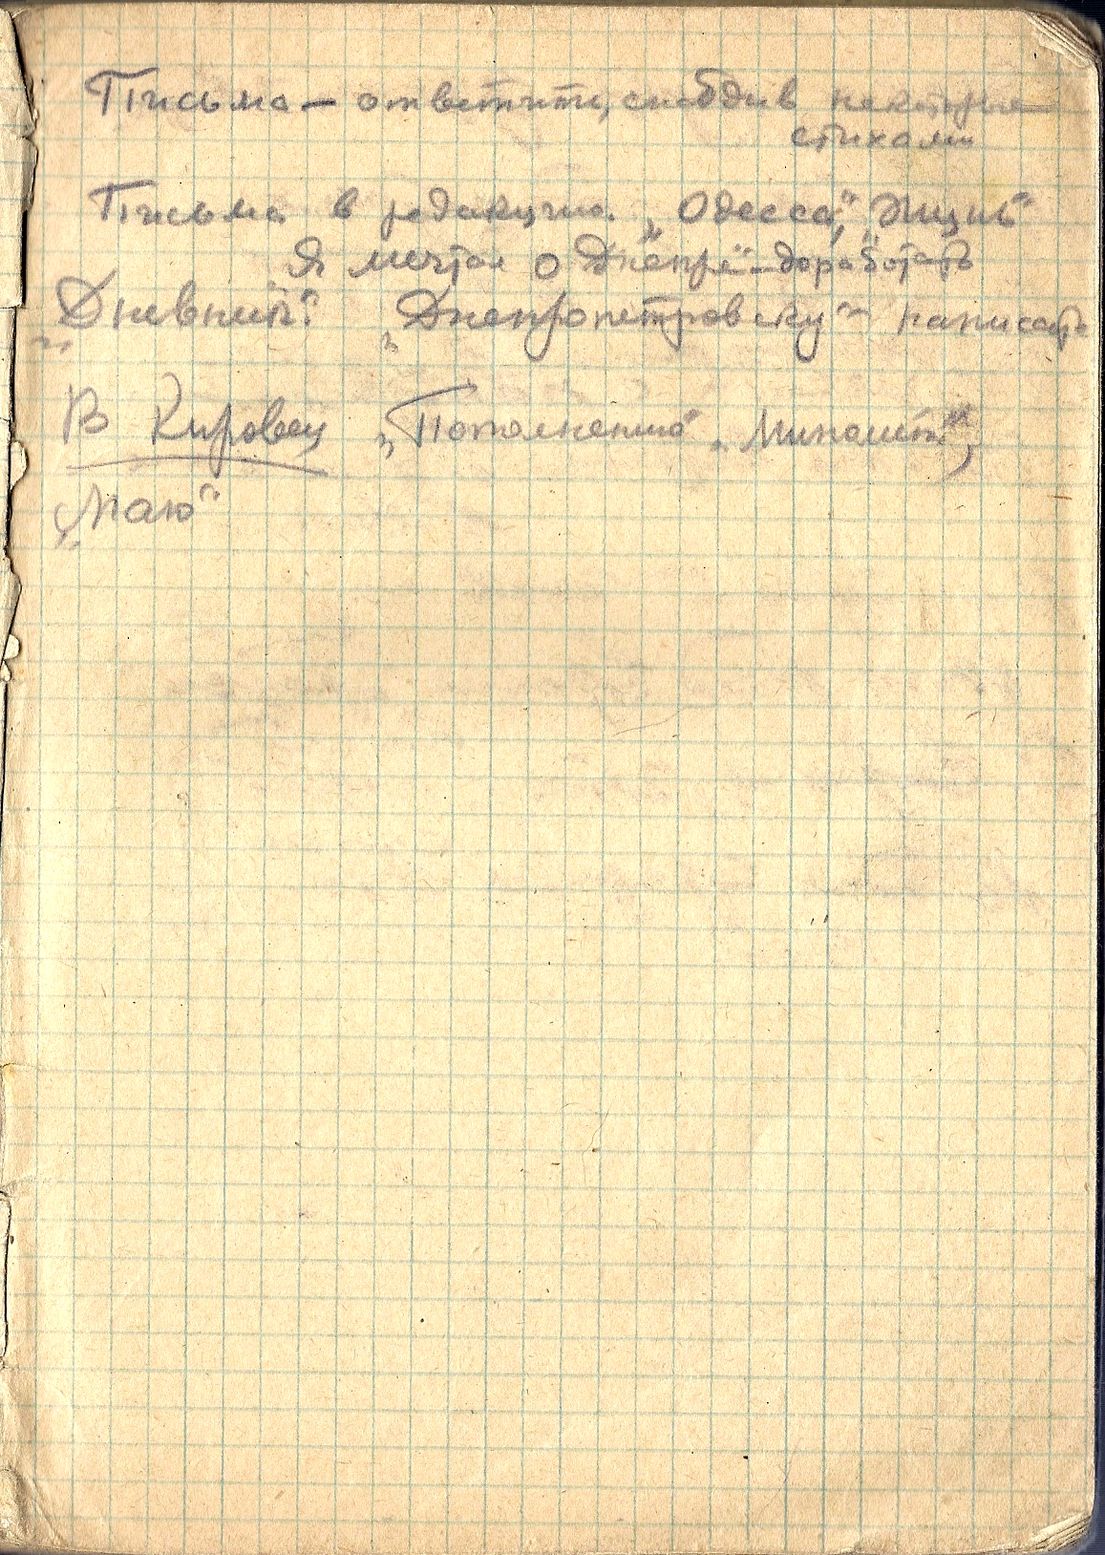 Письма — ответить, снабдив некоторые
стихами
Письма в редакцию. „Одесса“, „Жизнь“
„Я мечтал о Днепре“ — доработать
„Дневник“. „Днепропетровску“ — написать
В Кировец „Пополнению“ „Миномёт“,
„Маю“